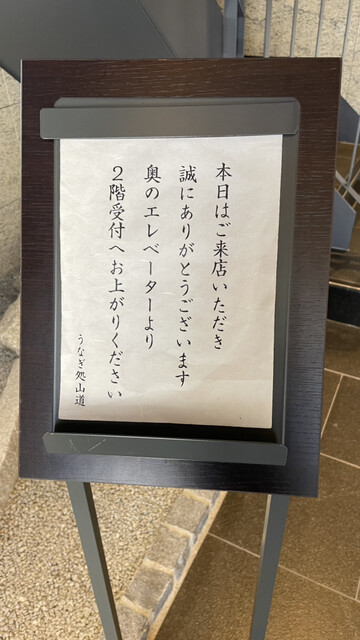 本日はご来店いただき
誠にありがとうございます
奥のエレベーターより
２階受付へお上がりください
うなぎ処山道